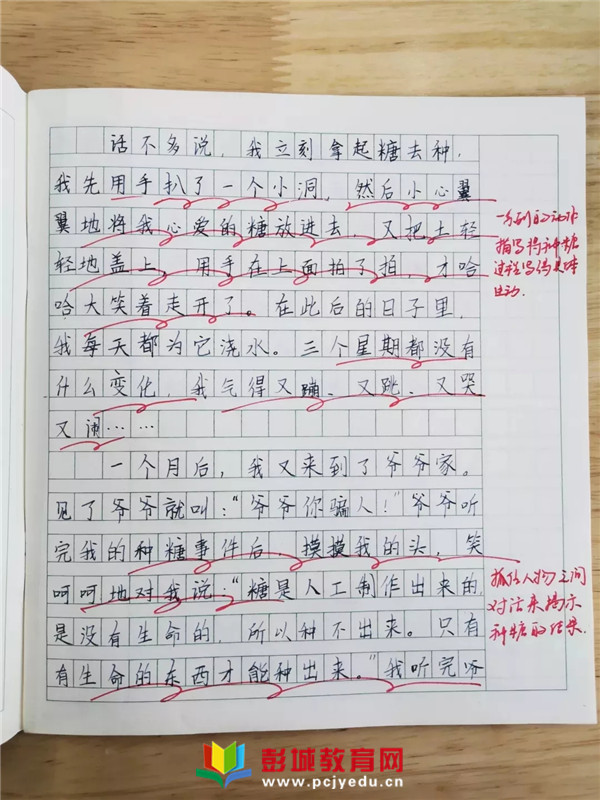 话不多说，我立刻拿起糖去种，
我先用手扒了一个小洞，然后小心翼
翼地将我心爱的糖放进去，又把土轻
轻地盖上，用手在上面拍了拍，才哈
哈大笑着走开了。在此后的日子里，
我每天都为它浇水。三个星期都没有
什么变化，我气得又蹦、又跳、又哭
又闹……
一个月后，我又来到了爷爷家。
见了爷爷就叫：“爷爷你骗人！”爷爷听
完我的种糖事件后 摸摸我的头，笑
呵呵地对我说：“糖是人工制作出来的，
是没有生命的，所以种不出来。只有
有生命的东西才能种出来。”我听完爷
一系列的动作
描写将种糖
过程写得具体
生动.
人物之间
对话来揭示
种糖的结果.
彭城教育网
www.pcjyedu.cn